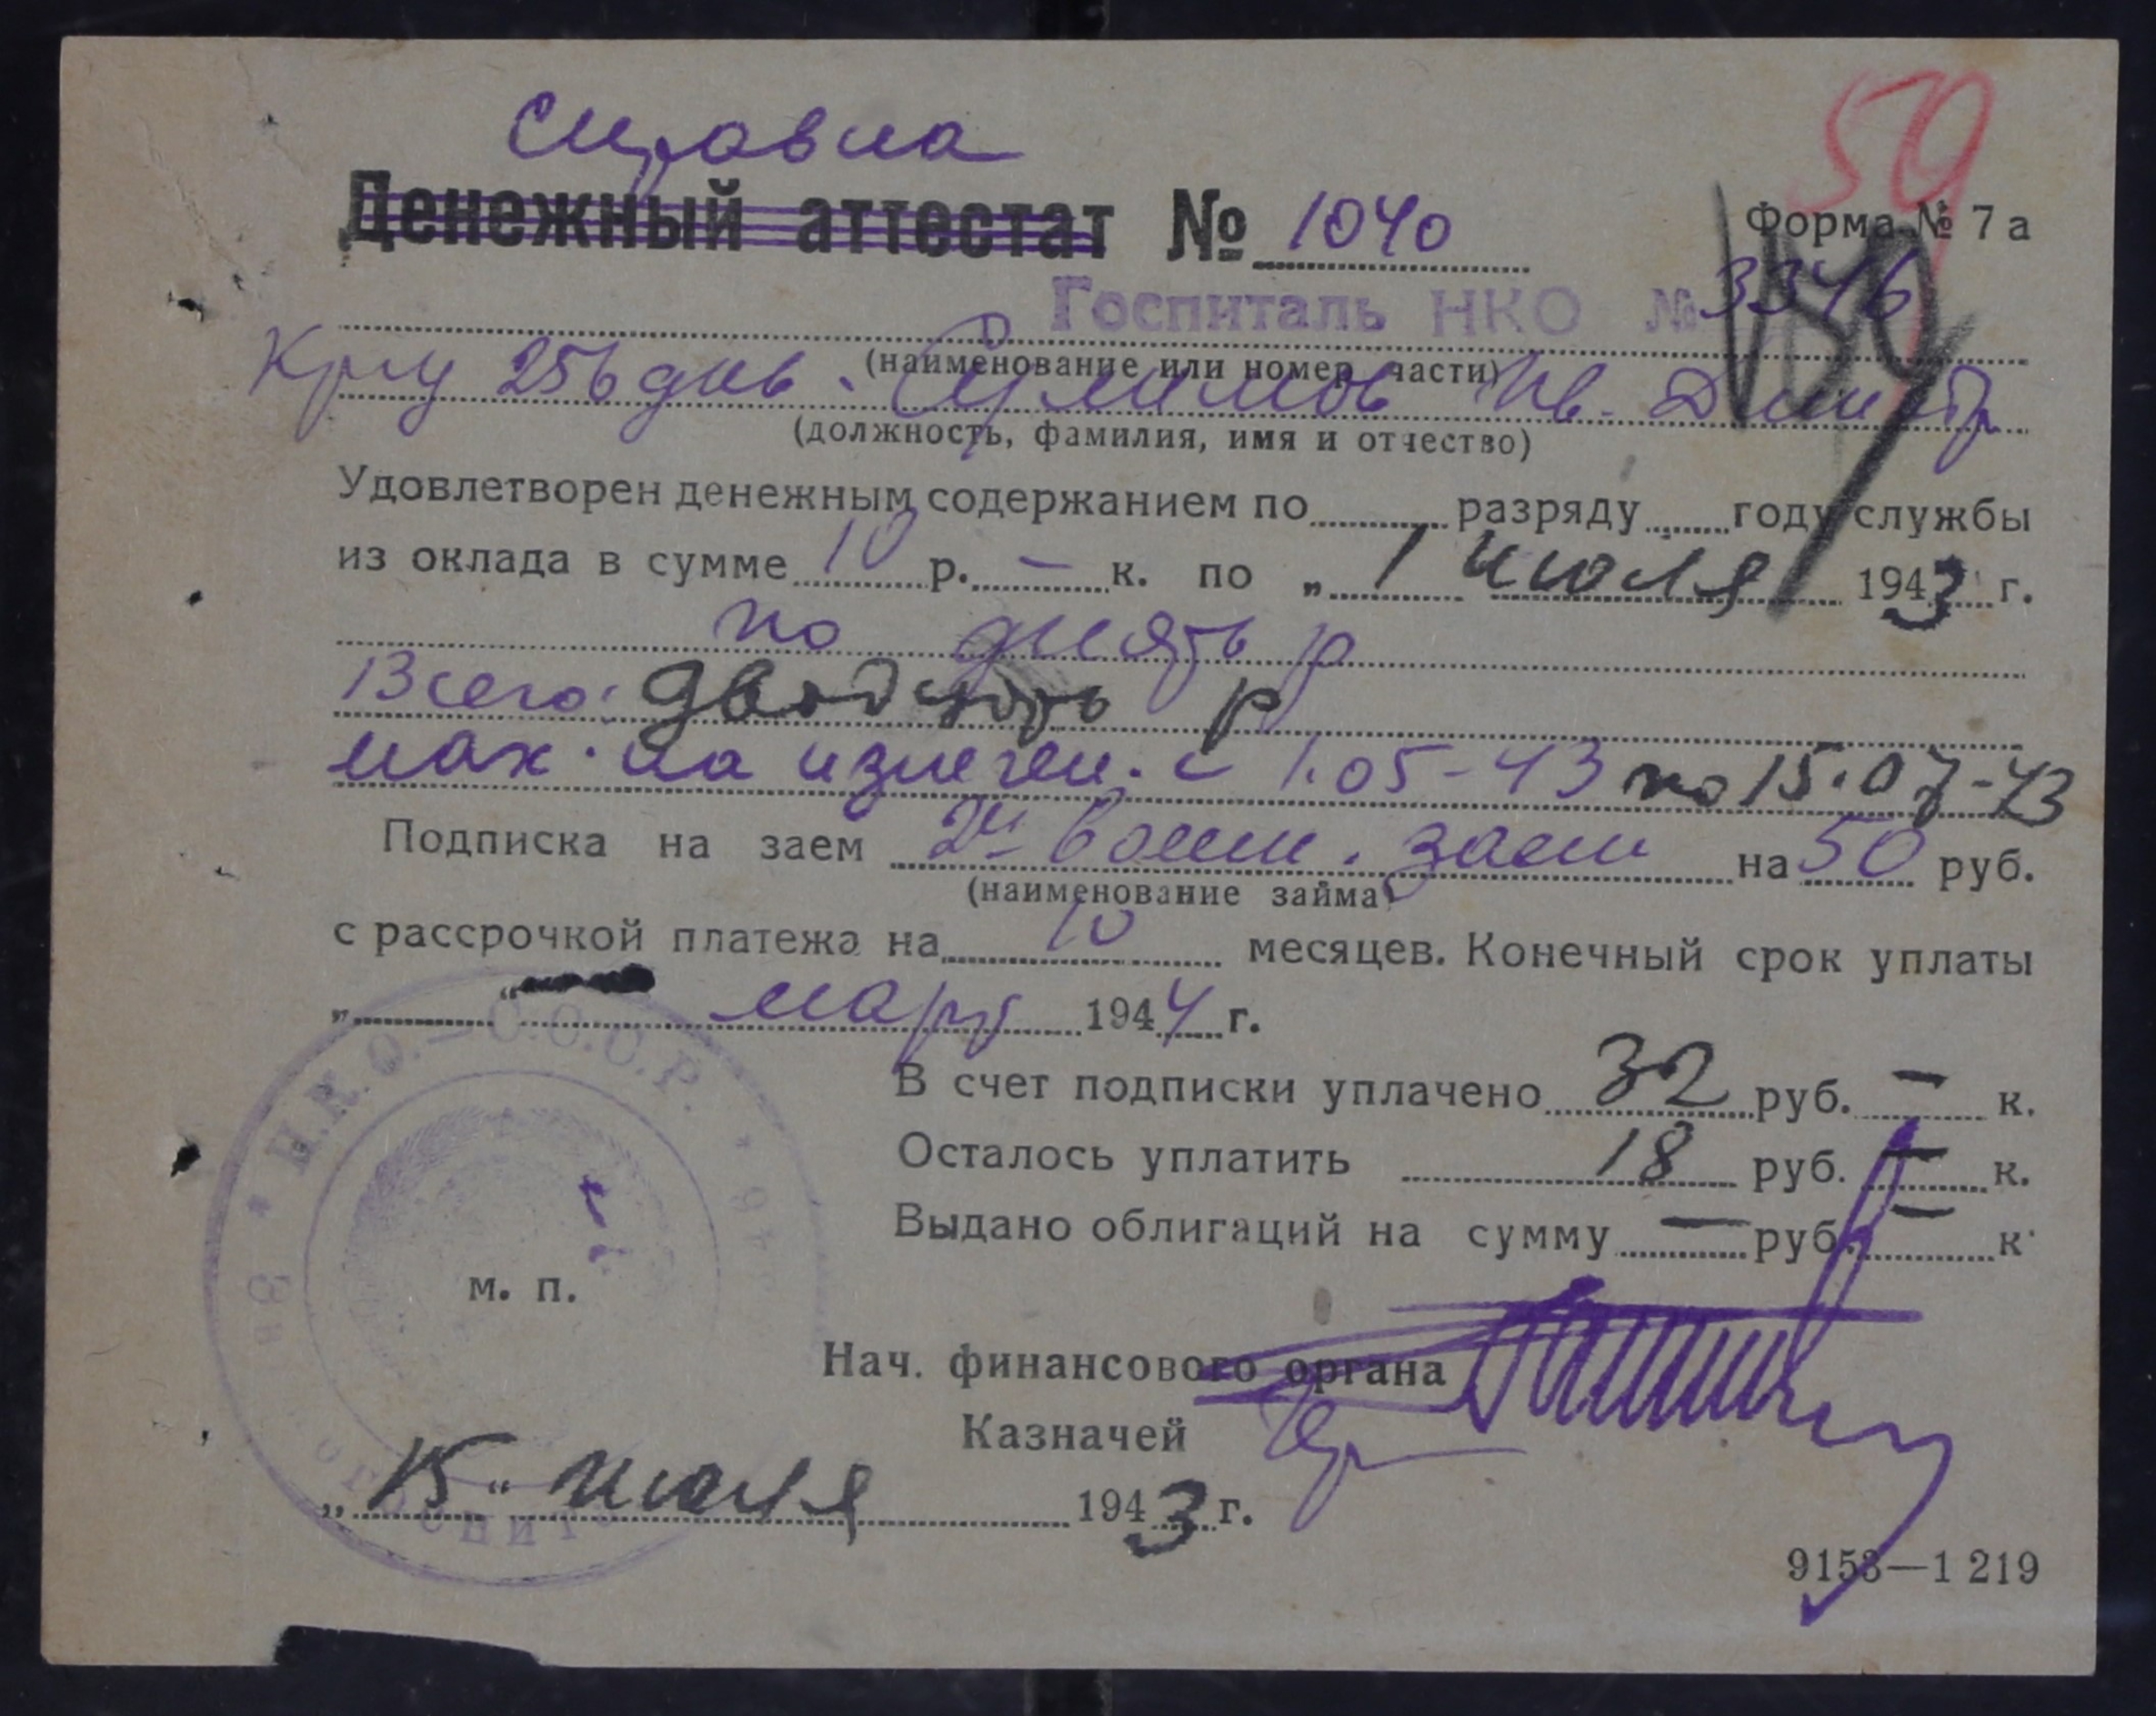 Справка
59
Денежный аттестат № 1040
Форма № 7а
Госпиталь НКО № 3346
(наименование или номер части)
Кр-ц 256 див. Ив. Дмитр
(должность, фамилия, имя и отчество)
Удовлетворен денежным содержанием по разряду году службы
из оклада в сумме 10 р. — к. по „ 1 июля 1943 г.
по десять р
Всего: двадцать р
нах. на излечен. с 1.05-43 по 15.07-43
Подписка на заем 2й воен. заем на 50 руб.
(наименование займа)
с рассрочкой платежа на 10 месяцев. Конечный срок уплаты
„ “ март 1944 г.
В счет подписки уплачено 32 руб. — к.
Осталось уплатить 18 руб. — к.
Выдано облигаций на сумму — руб. — к.
Н.К.О.–С.С.С.Р.
м. п.
Нач. финансового органа
Казначей
„15“ июля 1943 г.
9153—1 219